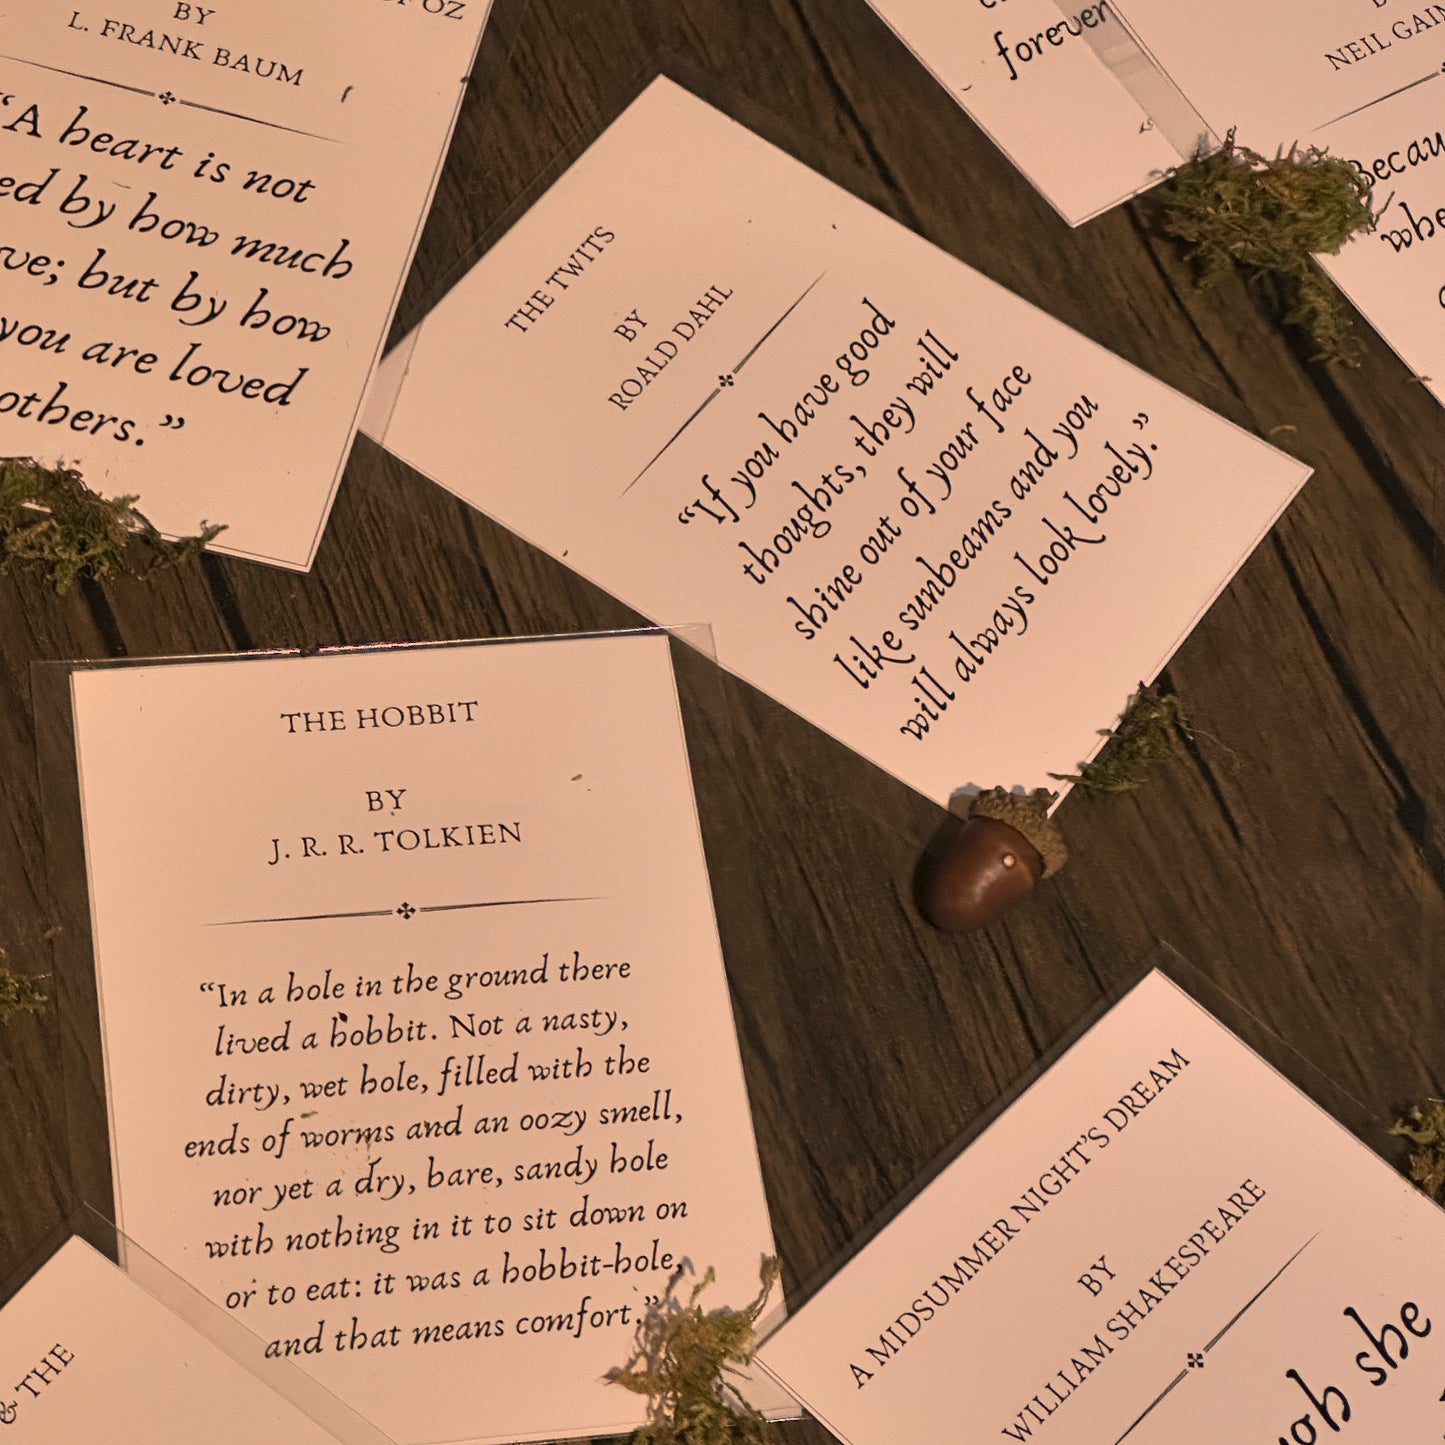 OZ
BY
L. FRANK BAUM
“A heart is not
by how much
but by how
you are loved
others.”
THE TWITS
BY
ROALD DAHL
“If you have good
thoughts, they will
shine out of your face
like sunbeams and you
will always look lovely.”
forever
NEIL
THE HOBBIT
BY
J. R. R. TOLKIEN
“In a hole in the ground there
lived a hobbit. Not a nasty,
dirty, wet hole, filled with the
ends of worms and an oozy smell,
nor yet a dry, bare, sandy hole
with nothing in it to sit down on
or to eat: it was a hobbit-hole,
and that means comfort.”
& THE
A MIDSUMMER NIGHT’S DREAM
BY
WILLIAM SHAKESPEARE
she